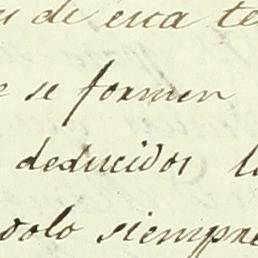 de esta te
se formen
deducidos l
dolo siempre